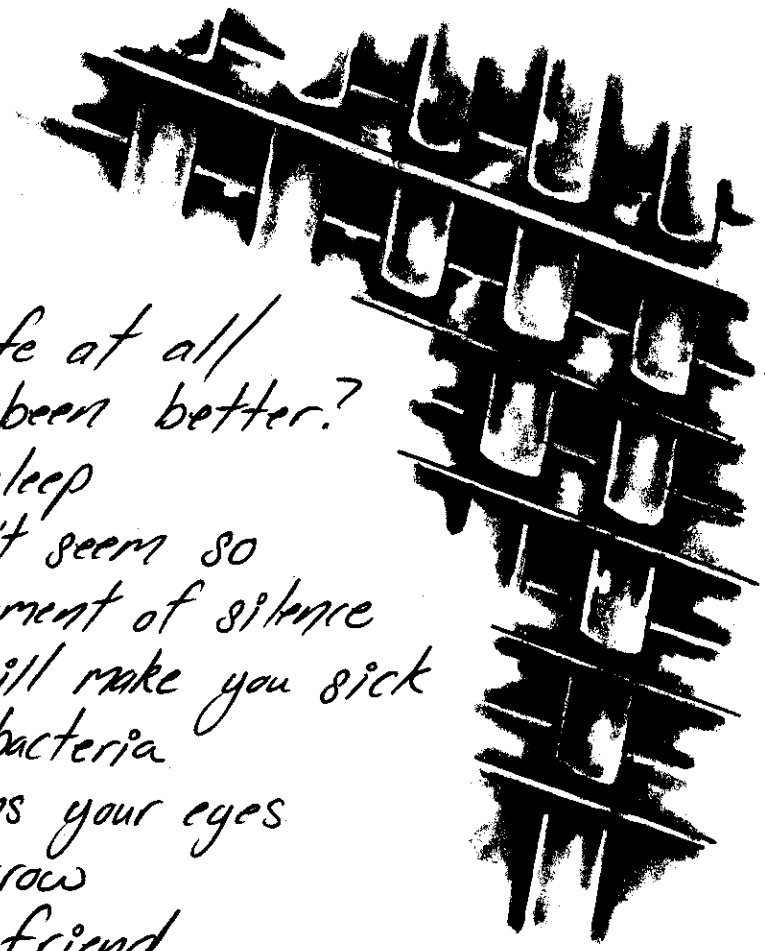 fe at all
been better?
leep
't seem so
ment of silence
ill make you sick
bacteria
os your eyes
row
friend